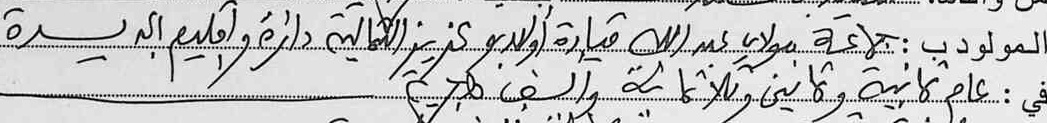 المولود ب: جماعة مولاي عبد الله قيادة أولاد بوعزيز الشمالية دائرة وإقليم الجديدة
في: عام ثمانية وثمانين وثلاثمائة وألف هجرية